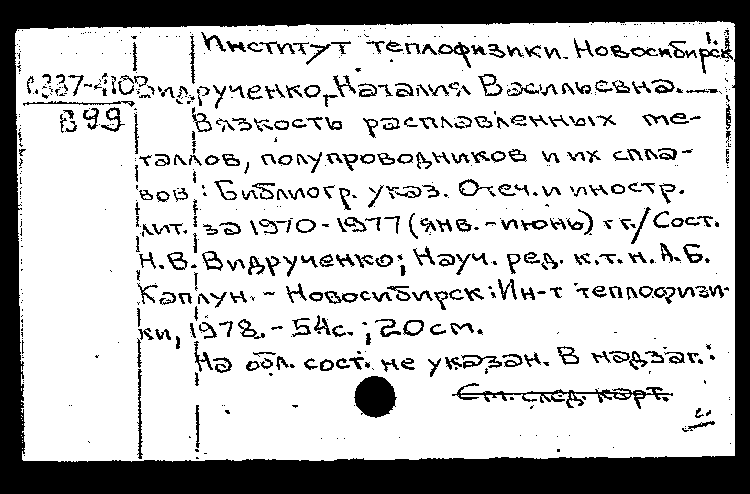 Институт теплофизики. Новосибирск
Видрученко, Наталия Васильевна. —
В99
Вязкость расплавленных ме-
таллов, полупроводников и их спла-
вов : Библиогр. указ. Отеч. и иностр.
лит. за 1970-1977 (янв. - июнь) гг. / Сост.
Н. В. Видрученко; Науч. ред. к.т.н. А.Б.
Каплун. - Новосибирск : Ин-т теплофизи-
ки, 1978. - 54с. ; 20см.
На обл. сост. не указан. В надзаг. :
См. след. карт.